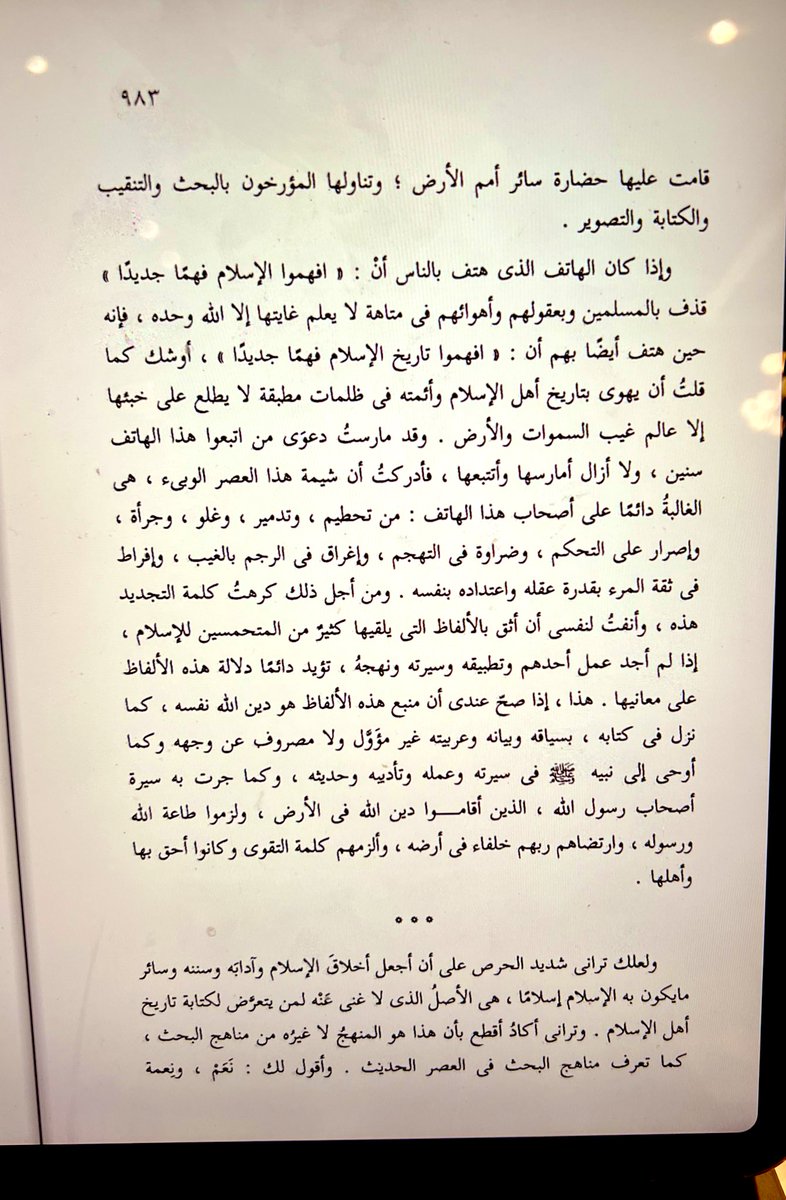 ٩٨٣
قامت عليها حضارة سائر أمم الأرض ؛ وتناولها المؤرخون بالبحث والتنقيب
والكتابة والتصوير .
وإذا كان الهاتف الذى هتف بالناس أنْ : « افهموا الإسلام فهمًا جديدًا »
قذف بالمسلمين وبعقولهم وأهوائهم فى متاهة لا يعلم غايتها إلا الله وحده ، فإنه
حين هتف أيضًا بهم أن : « افهموا تاريخ الإسلام فهمًا جديدًا » ، أوشك كما
قلتُ أن يهوى بتاريخ أهل الإسلام وأئمته فى ظلمات مطبقة لا يطلع على خبئها
إلا عالم غيب السموات والأرض . وقد مارستُ دعوَى من اتبعوا هذا الهاتف
سنين ، ولا أزال أمارسها وأتتبعها ، فأدركتُ أن شيمة هذا العصر الوبىء ، هى
الغالبةُ دائمًا على أصحاب هذا الهاتف : من تحطيم ، وتدمير ، وغلو ، وجرأة ،
وإصرار على التحكم ، وضراوة فى التهجم ، وإغراق فى الرجم بالغيب ، وإفراط
فى ثقة المرء بقدرة عقله واعتداده بنفسه . ومن أجل ذلك كرهتُ كلمة التجديد
هذه ، وأنفتُ لنفسى أن أثق بالألفاظ التى يلقيها كثيرٌ من المتحمسين للإسلام ،
إذا لم أجد عمل أحدهم وتطبيقه وسيرته ونهجهُ ، تؤيد دائمًا دلالة هذه الألفاظ
على معانيها . هذا ، إذا صحّ عندى أن منبع هذه الألفاظ هو دين الله نفسه ، كما
نزل فى كتابه ، بسياقه وبيانه وعربيته غير مؤَوَّل ولا مصروف عن وجهه وكما
أوحى إلى نبيه ﷺ فى سيرته وعمله وتأديبه وحديثه ، وكما جرت به سيرة
أصحاب رسول الله ، الذين أقامــوا دين الله فى الأرض ، ولزموا طاعة الله
ورسوله ، وارتضاهم ربهم خلفاء فى أرضه ، وألزمهم كلمة التقوى وكانوا أحق بها
وأهلها .
* * *
ولعلك ترانى شديد الحرص على أن أجعل أخلاقَ الإسلام وآدابَه وسننه وسائر
مايكون به الإسلام إسلامًا ، هى الأصلُ الذى لا غنى عَنْه لمن يتعرّض لكتابة تاريخ
أهل الإسلام . وترانى أكادُ أقطع بأن هذا هو المنهجُ لا غيرُه من مناهج البحث ،
كما تعرف مناهج البحث فى العصر الحديث . وأقول لك : نَعَمْ ، ونِعمة